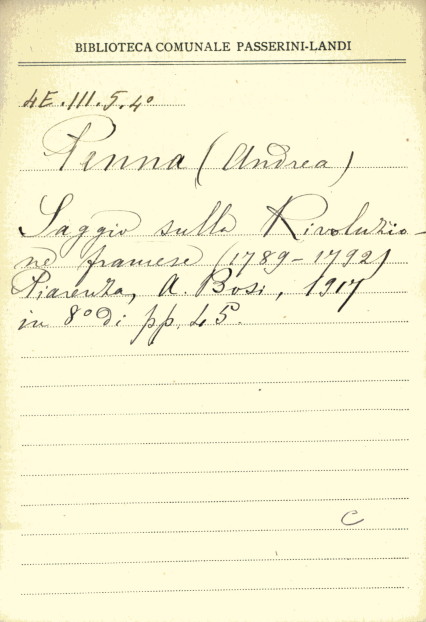 BIBLIOTECA COMUNALE PASSERINI-LANDI
4E.III.5.4°
Penna (Andrea)
Saggio sulla Rivoluzio-
ne francese (1789-1792)
Piacenza, A. Bosi, 1917
in 8° di pp. 45.
C